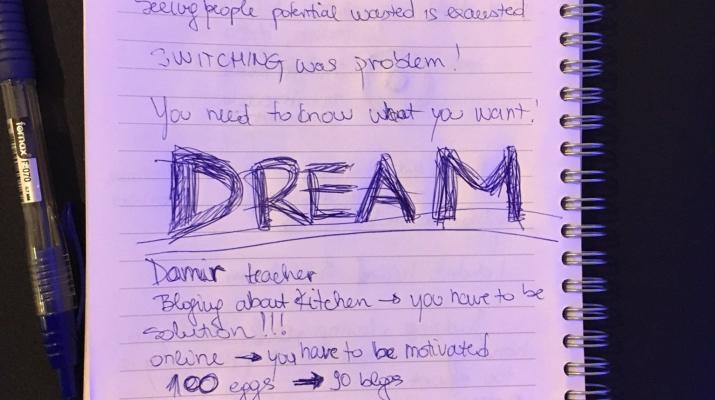 seeing people potential wasted is exausted
SWITCHING was problem!
You need to know what you want!
DREAM
Damir teacher
Bloging about kitchen → you have to be
solution!!!
online → you have to be motivated
100 eggs → 90 blogs
fornax F-070